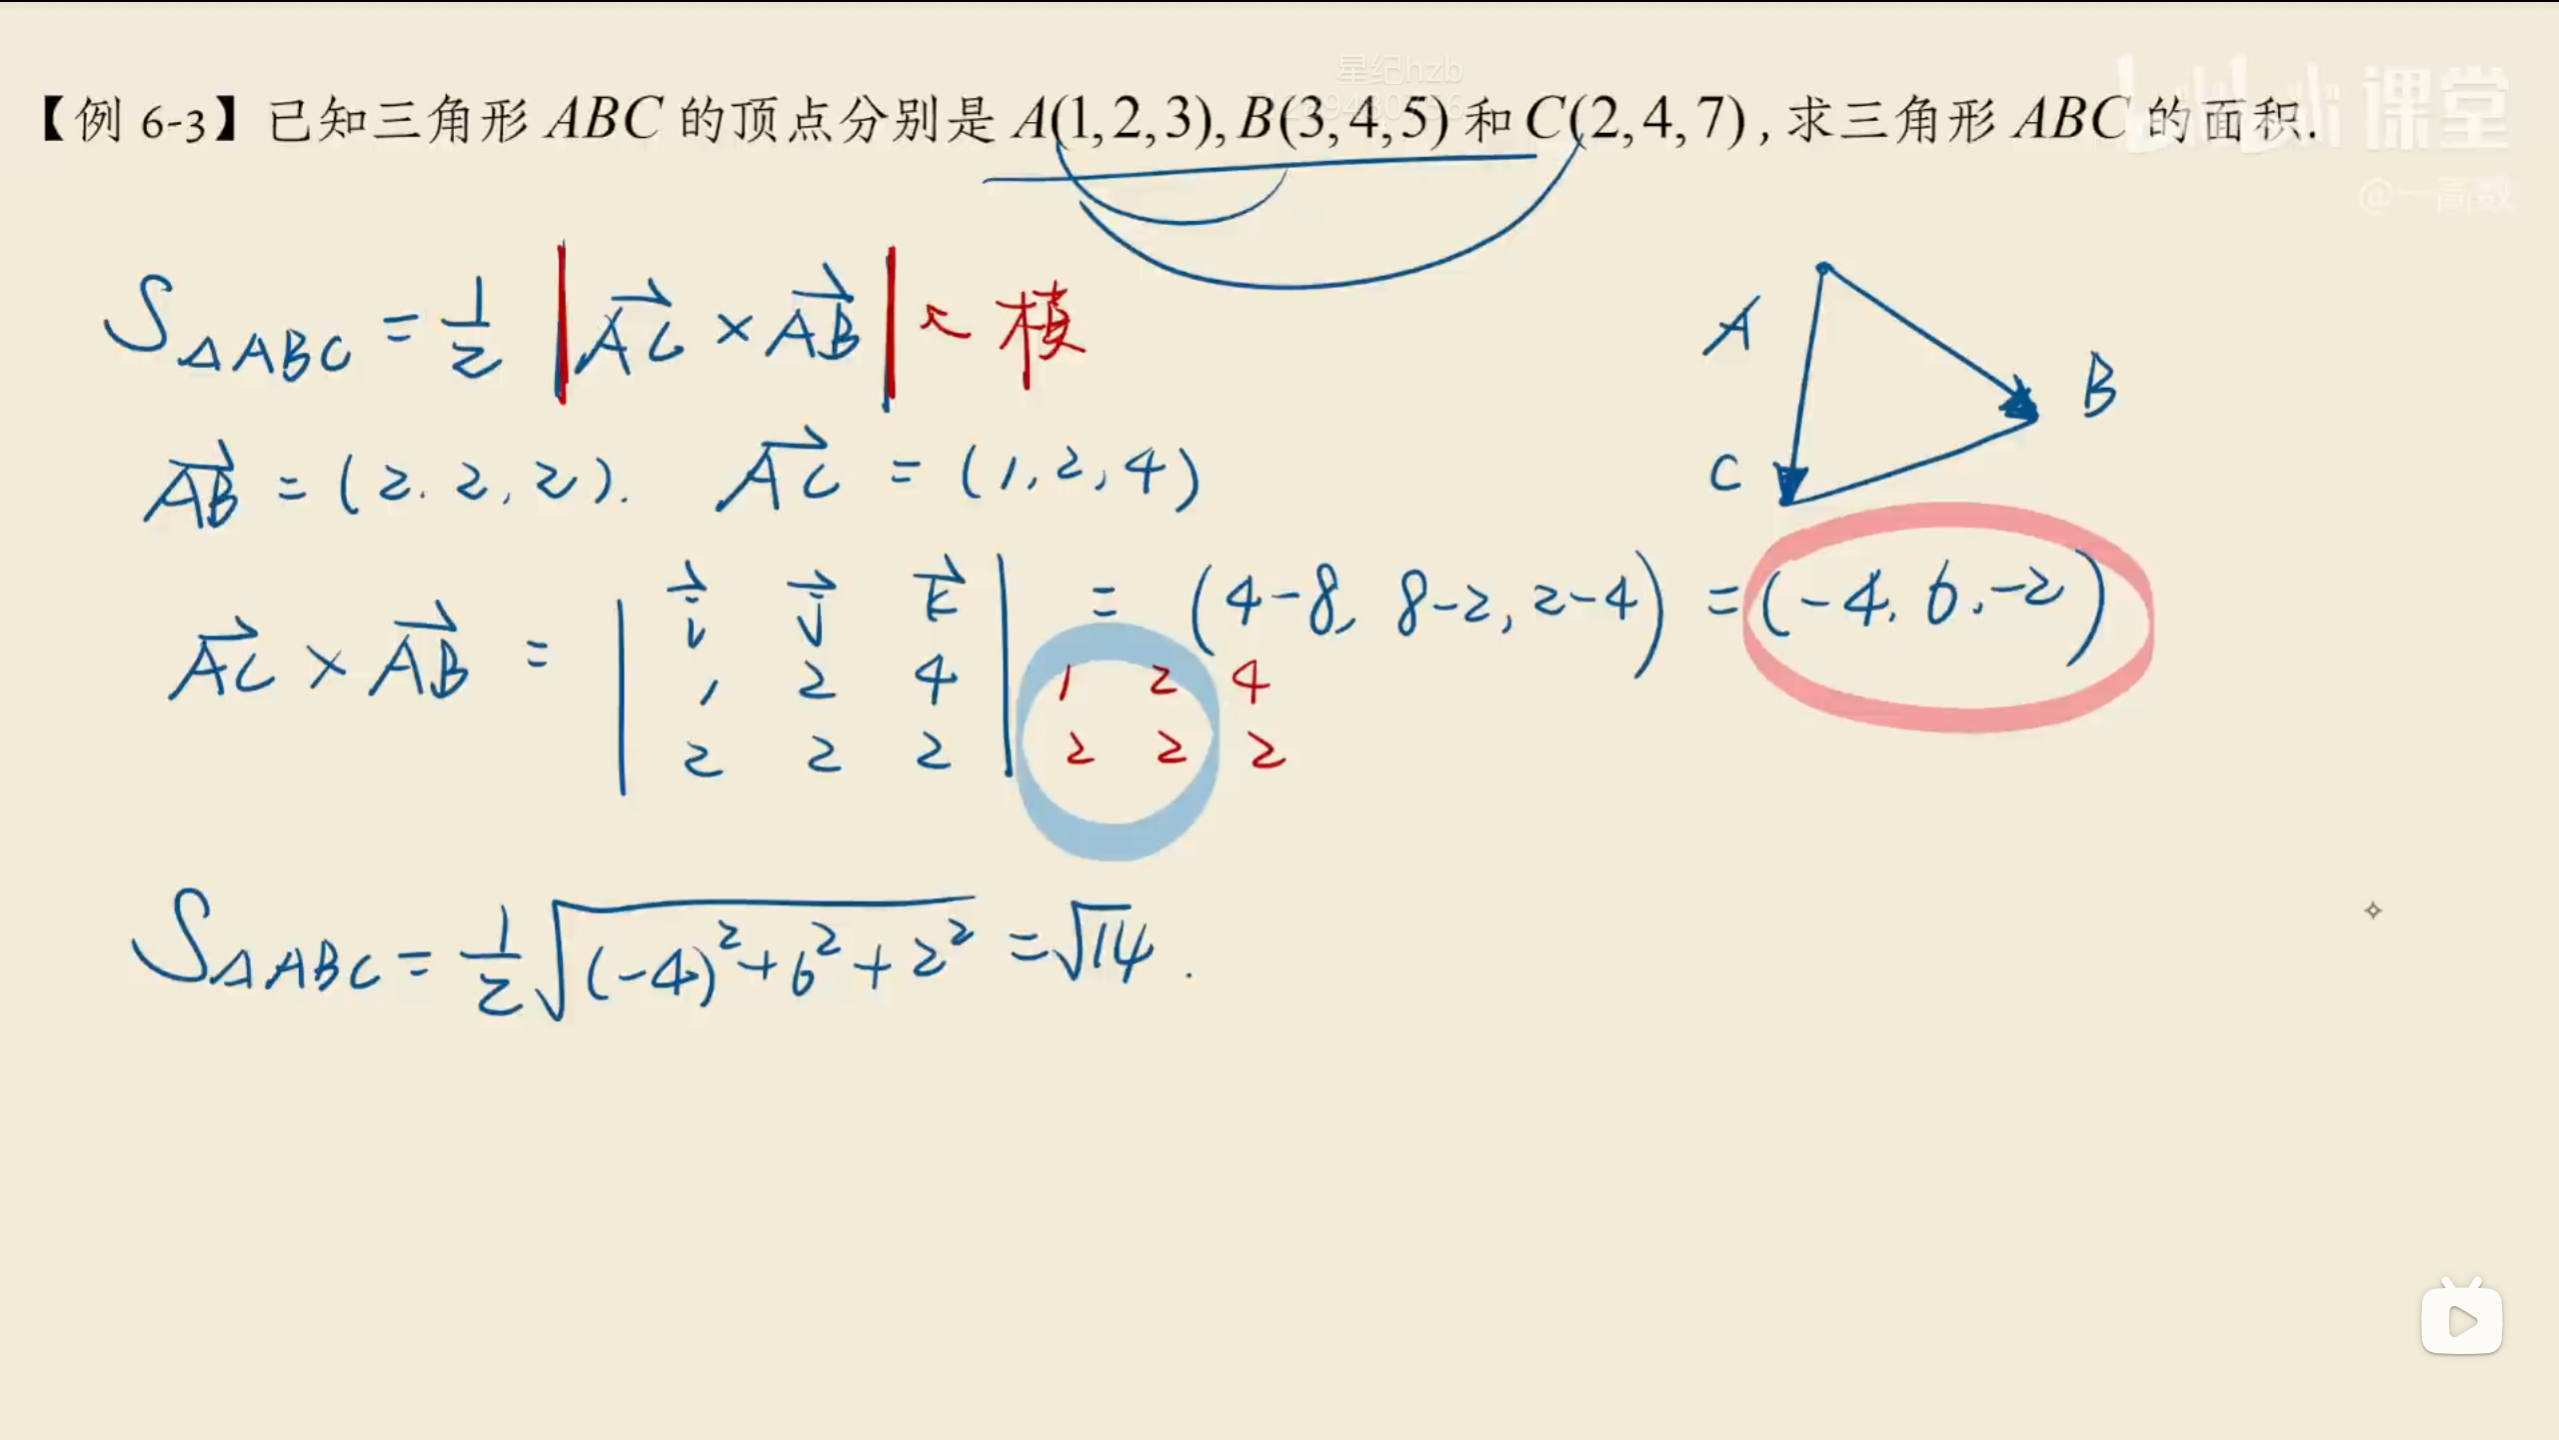 星纪hzb
bilibili 课堂
【例 6-3】已知三角形 ABC 的顶点分别是 A(1,2,3), B(3,4,5) 和 C(2,4,7), 求三角形 ABC 的面积.
@一高数
S△ABC = 1/2 |AC × AB| ← 模
A
B
C
AB = (2. 2, 2). AC = (1, 2, 4)
AC × AB = | i j k | = (4-8, 8-2, 2-4) = (-4. 6. -2)
1 2 4 1 2 4
2 2 2 2 2 2
S△ABC = 1/2 √((-4)²+6²+2²) = √14 .